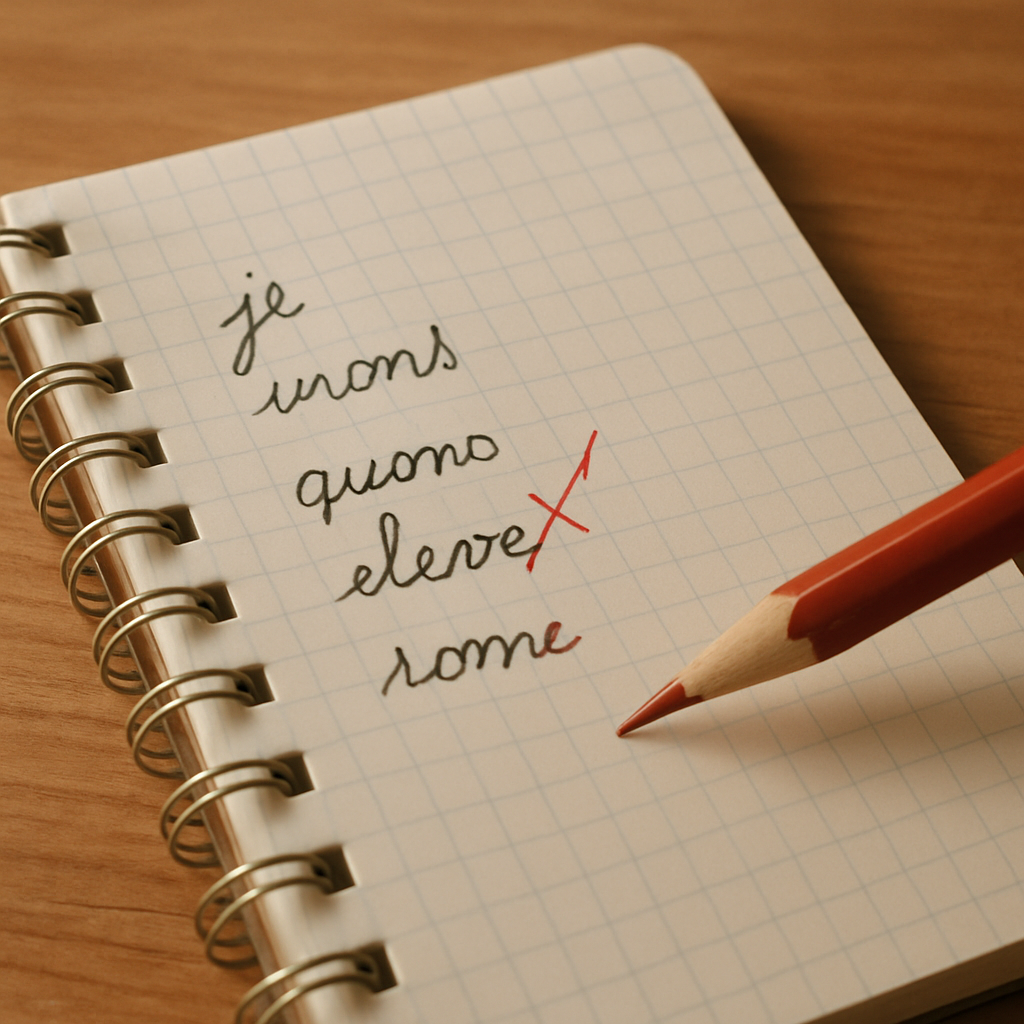 je
urons
quono
eleve
rome